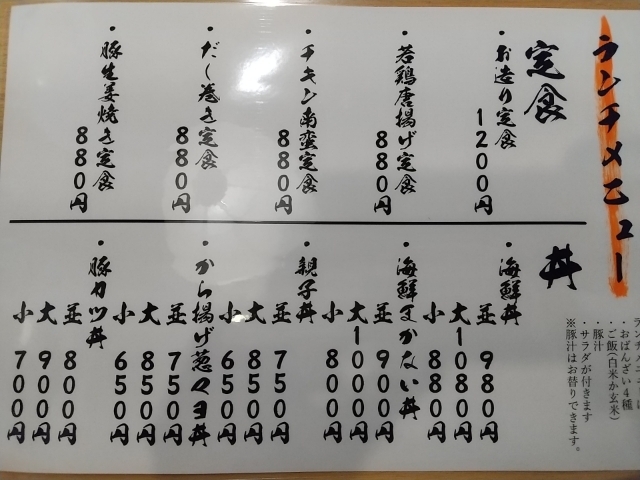 ランチメニュー
定食
・お造り定食 1200円
・若鶏唐揚げ定食 880円
・チキン南蛮定食 880円
・だし巻き定食 880円
・豚生姜焼き定食 880円
丼
・海鮮丼
並 980円
大 1080円
小 880円
・海鮮まかない丼
並 900円
大 1000円
小 800円
・親子丼
並 750円
大 850円
小 650円
・から揚げ葱マヨ丼
並 750円
大 850円
小 650円
・豚カツ丼
並 800円
大 900円
小 700円
・おばんざい4種
・ご飯(白米か玄米)
・豚汁
・サラダが付きます
※豚汁はお替りできます。